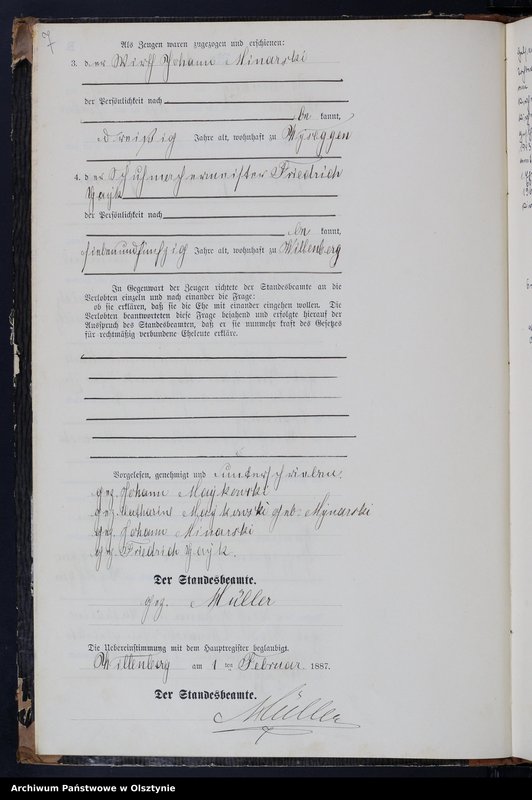 7
Als Zeugen waren zugezogen und erschienen:
3. der Wirth Johann Minarski
der Persönlichkeit nach
be kannt,
dreißig Jahre alt, wohnhaft zu Wyseggen
4. der Schuhmachermeister Friedrich
Gayk
der Persönlichkeit nach
be kannt,
siebenundfünfzig Jahre alt, wohnhaft zu Willenberg
In Gegenwart der Zeugen richtete der Standesbeamte an die
Verlobten einzeln und nach einander die Frage:
ob sie erklären, daß sie die Ehe mit einander eingehen wollen. Die
Verlobten beantworteten diese Frage bejahend und erfolgte hierauf der
Ausspruch des Standesbeamten, daß er sie nunmehr kraft des Gesetzes
für rechtmäßig verbundene Eheleute erkläre.
Vorgelesen, genehmigt und unterschrieben.
gez. Johann Maykowski
gez. Katharina Maykowski geb. Mynarski
gez. Johann Minarski
gez. Friedrich Gayk.
Der Standesbeamte.
gez. Müller
Die Uebereinstimmung mit dem Hauptregister beglaubigt.
Willenberg am 1 ten Februar 1887.
Der Standesbeamte.
Müller
Archiwum Państwowe w Olsztynie